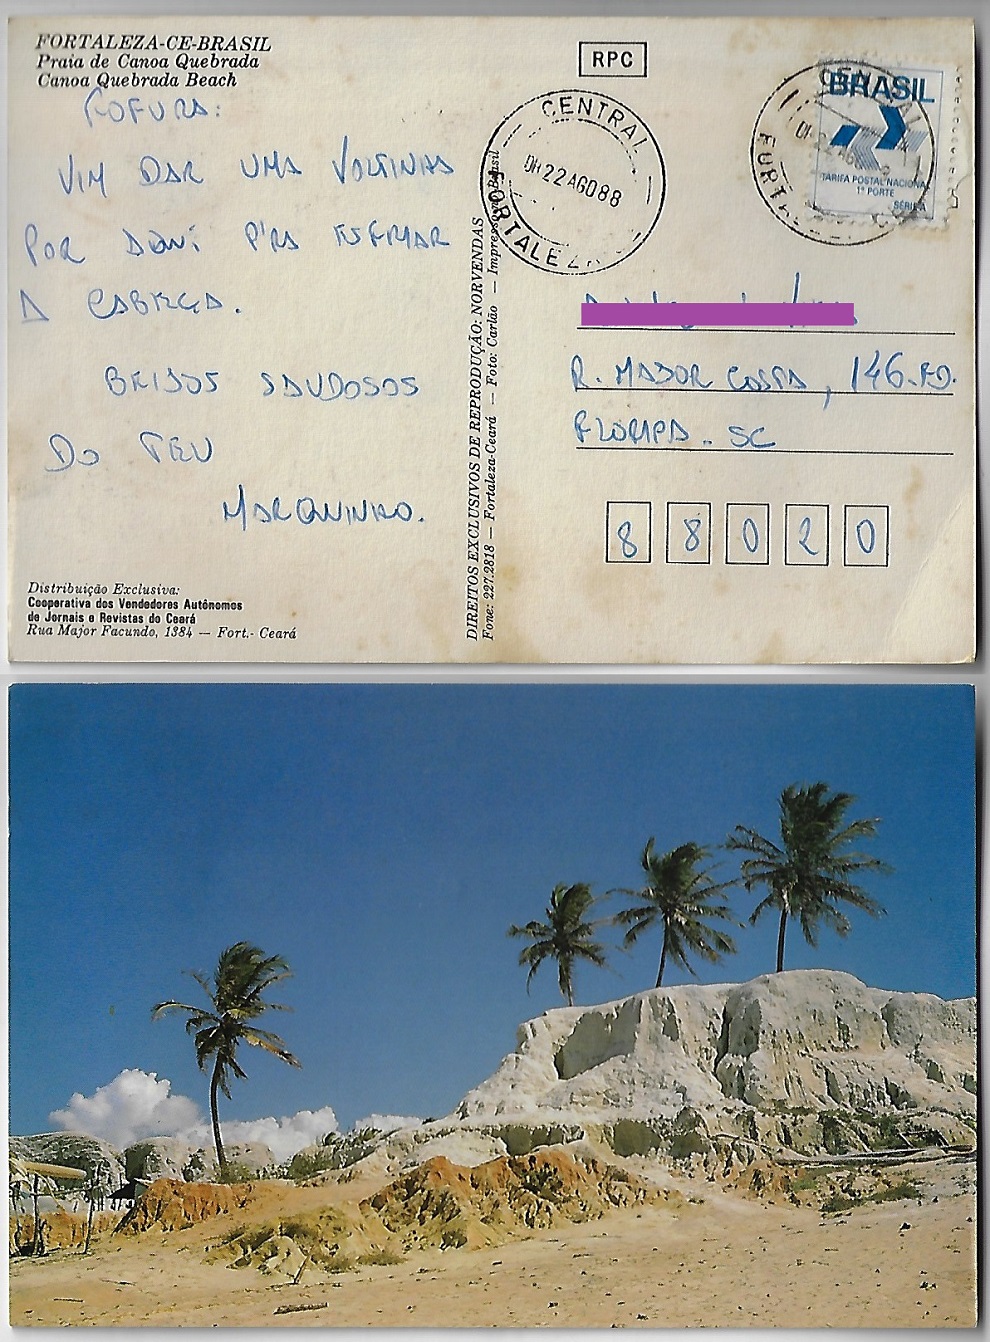 FORTALEZA-CE-BRASIL
Praia de Canoa Quebrada
Canoa Quebrada Beach
FOFURA:
VIM DAR UMA VOLTINHA
POR AQUI P'RA ESFRIAR
A CABEÇA.
BEIJOS SAUDOSOS
DO TEU
MARQUINHO.
Distribuição Exclusiva:
Cooperativa dos Vendedores Autônomos
de Jornais e Revistas do Ceará
Rua Major Facundo, 1384 — Fort.- Ceará
DIREITOS EXCLUSIVOS DE REPRODUÇÃO: NORVENDAS
Fone: 227.2818 — Fortaleza-Ceará — Foto: Carlão — Impresso no Brasil
RPC
CENTRAL
22 AGO 88
FORTALEZA
BRASIL
TARIFA POSTAL NACIONAL
1º PORTE
SÉRIE A
R. MAJOR COSTA, 146.FD.
FLORIPA - SC
88020